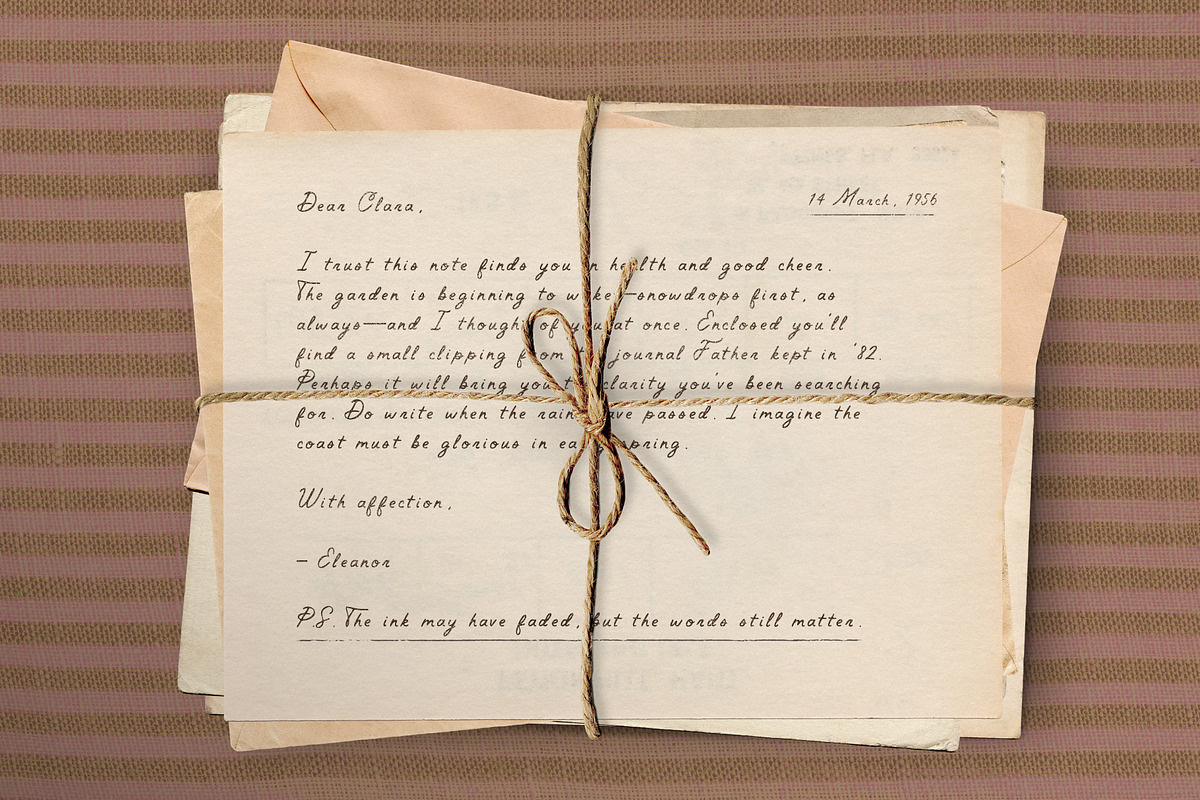 Dear Clara,
14 March, 1956
I trust this note finds you in health and good cheer.
The garden is beginning to wake—snowdrops first, as
always—and I thought of you at once. Enclosed you'll
find a small clipping from the journal Father kept in '82.
Perhaps it will bring you the clarity you've been searching
for. Do write when the rains have passed. I imagine the
coast must be glorious in early spring.
With affection,
– Eleanor
P.S. The ink may have faded, but the words still matter.